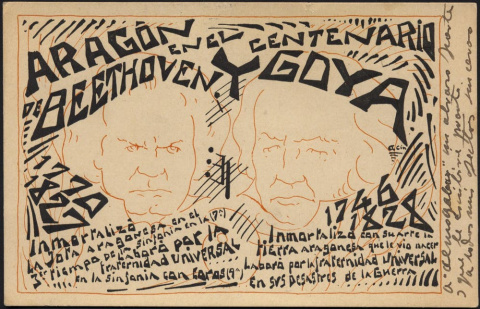 ARAGÓN EN EL CENTENARIO
DE BEETHOVEN Y GOYA
1770
1827
Inmortalizó en el
la Jota aragonesa sinfonía (7ª)
tiempo de laboró por la
fraternidad UNIVERSAL
en la sinfonía con coros (9ª)
1746
1828
Inmortalizó con su arte la
tierra aragonesa que le vio nacer
Laboró por la fraternidad UNIVERSAL
en sus DESASTRES de la GUERRA
que le escribiré pronto.